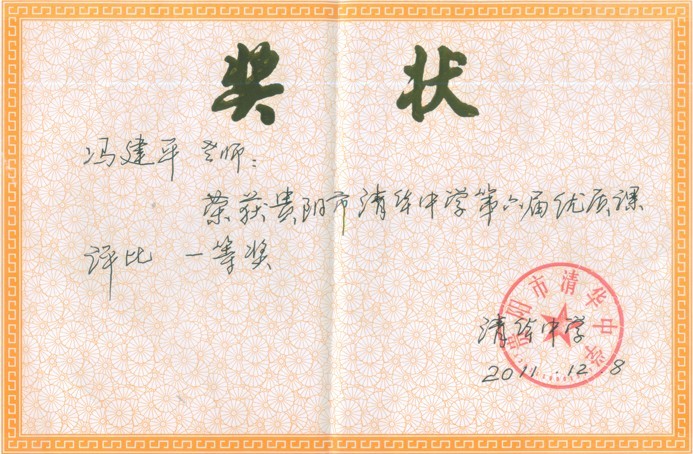 奖 状
冯建平 老师:
荣获贵阳市清华中学第六届优质课
评比 一等奖
贵阳市清华中学
清华中学
2011.12.8